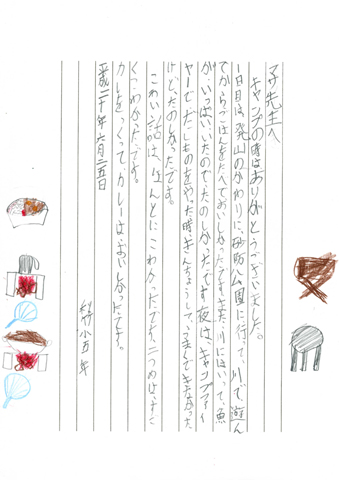 マサ先生へ
キャンプの時はありがとうございました。
1日目は、登山のかわりに、砂防公園に行って、川で、遊ん
でからごはんをたべておいしかったです。また、川にはいって、魚
が、いっぱい、いたので、たのしかったです。夜は、キャンプファイ
ヤーで、だしものをやった時きんちょうして、うまくできなかった
けど、たのしかったです。
こわい話は、ほんとにこわかったです。二つめは、すご
くこわかったです。
カレーをつくって、カレーは、おいしかったです。
平成二十年六月二五日
小五年